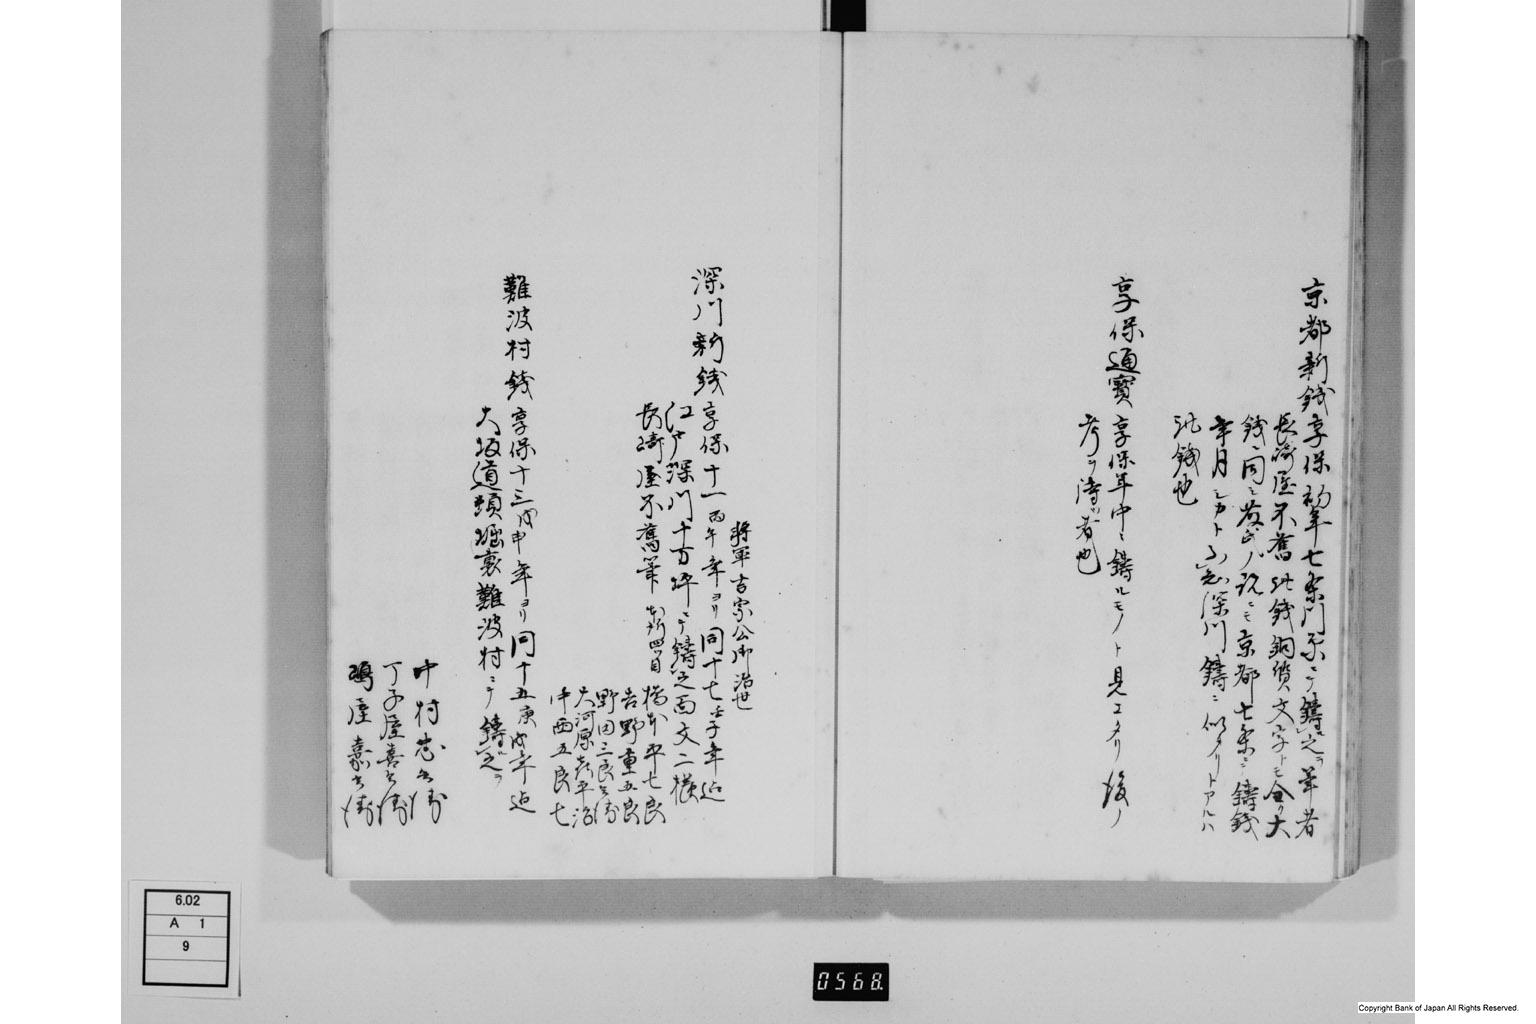 京都新銭 享保初年七条門前ニテ鋳之ヲ筆者
長崎屋不舊此銭銅質文字トモ全ク大
銭ニ同シ
年月シカト不知深川鋳ニ似タリトアルハ
此銭也
享保通寳 享保年中ニ鋳ルモノト見エタリ後ノ
考ヲ濤者也
深川新銭 享保十一丙午年ヨリ同十七壬子年迄
將軍吉宗公御治世
江戸深川十万坪ニテ鋳之面文二様
長崎屋不舊筆 本所四ツ目
橋本平七良
吉野重五良
野田三良兵衛
大河原
中西五良七
難波村銭 享保十三戊申年ヨリ同十五庚戌年迄
大坂道頭堀裏難波村ニテ鋳之ヲ
中村忠兵衛
丁子屋喜兵衛
嶋屋嘉兵衛
6.02
A 1
9
0568.
Copyright Bank of Japan All Rights Reserved.